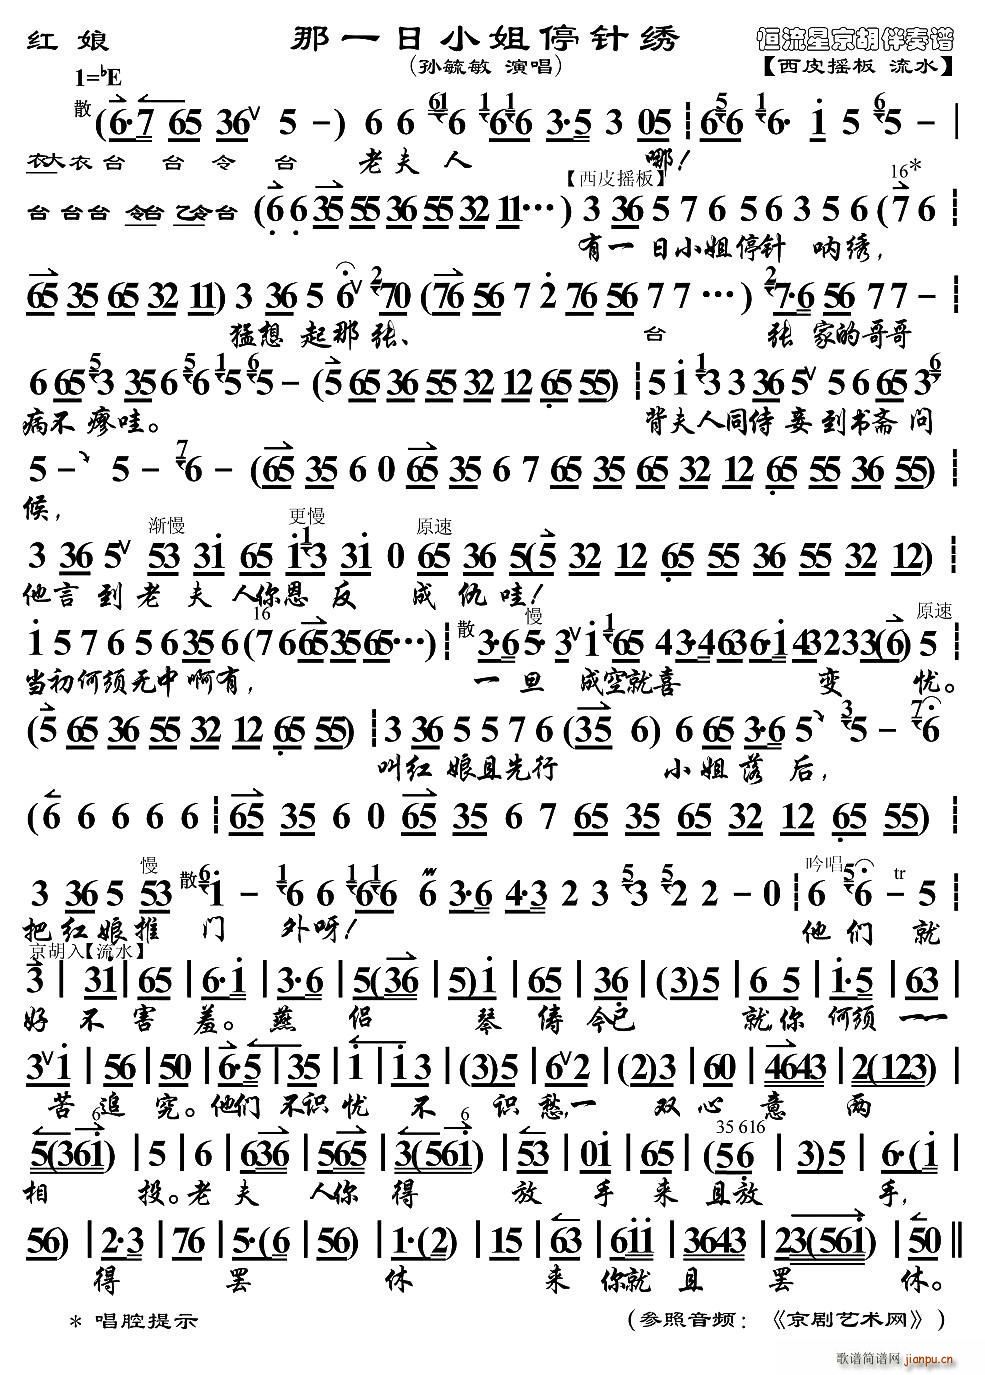 红 娘 那一日小姐停针绣 恒流星京胡伴奏谱
(孙毓敏 演唱) 【西皮摇板 流水】
1=♭E
散 (6·7 65 36 ∨ 5 -) 6 6 61 6 1 1 66 3·5 3 05 5 66 1 6· i 5 6 5 -
衣大衣台 台 令 台 老夫人 哪!
【西皮摇板】 16*
台 台台 令台 乙令台 (6 6 35 55 36 55 32 11 ···) 3 36 5 7 6 5 6 3 5 6 (7 6
有一日小姐停针 呐绣,
65 35 65 32 11) 3 36 5 6 ∨ 2 70 (76 56 7 2 76 56 7 7 ···) 2 7·6 56 7 7 -
猛想 起那 张、 台 张 家的哥哥
6 65 5 3 35 6 5 6 1 5 6 5 - (5 65 36 55 32 12 65 55) 5 i 1 3 3 36 5 ∨ 5 6 65 3 6
病不 瘳哇。 背夫人同侍妾到书斋 问
5 - 5 - 7 6 - (65 35 6 0 65 35 6 7 65 35 65 32 12 65 55 36 55)
候,
渐慢 更慢 原速
3 36 5 ∨ 53 3i 65 i 1 3 3i 0 65 36 5(5 32 12 65 55 36 55 32 12)
他言到老夫人你恩反 成仇哇!
16 散 慢 原速
i 5 7 6 5 6 35 6 (7 6 65 35 65 ···) 3·6 5· 3 ∨ i 1 65 43·4 63 6·i 43 2 33 (6) 5
当初何须无中啊有, 一旦 成空就喜 变 忧。
(5 65 36 55 32 12 65 55) 3 36 5 5 7 6 (35 6) 6 65 3·6 5 3 5 - 7 6
叫红娘且先行 小姐落后,
(6 6 6 6 6 65 35 6 0 65 35 6 7 65 35 65 32 12 65 55)
慢 散 吟唱 tr
3 36 5 53 6 i - 1 6 6 1 1 66 6 3·6 4·3 2 3 5 3 5 2 2 - 0 6 5 6 - 5
把红娘推 门 外呀! 他们就
京胡入【流水】
3 | 3i | 65 | 6·i | 3·6 | 5(36 | 5) i | 65 | 36 | (3)5 | 6 5 | i·5 | 63 |
好不害羞。燕侣 琴俦今已 就你何须一一
3 ∨ i | 56 | 50 | 6·5 | 35 | i | i 3 | (3)5 | 6 ∨ 2 | (2)3 | 60 | 4643 | 2(123) |
苦追究。他们不识忧不识愁,一双心意两
6 6 35 616
5(36i) | 5 | 6 | 636 | 565 | 3(56i) | 53 | 0i | 65 | (56 | 3)5 | 6·(i |
相 投。老夫 人你得 放手来且放 手,
56) | 2·3 | 76 | 5·(6 | 56) | 1·(2) | 15 | 63 | 6ii | 3643 | 23(56i) | 50 ‖
得 罢 休 来你就且罢 休。
* 唱腔提示 (参照音频:《京剧艺术网》)
歌谱简谱网
jianpu.cn